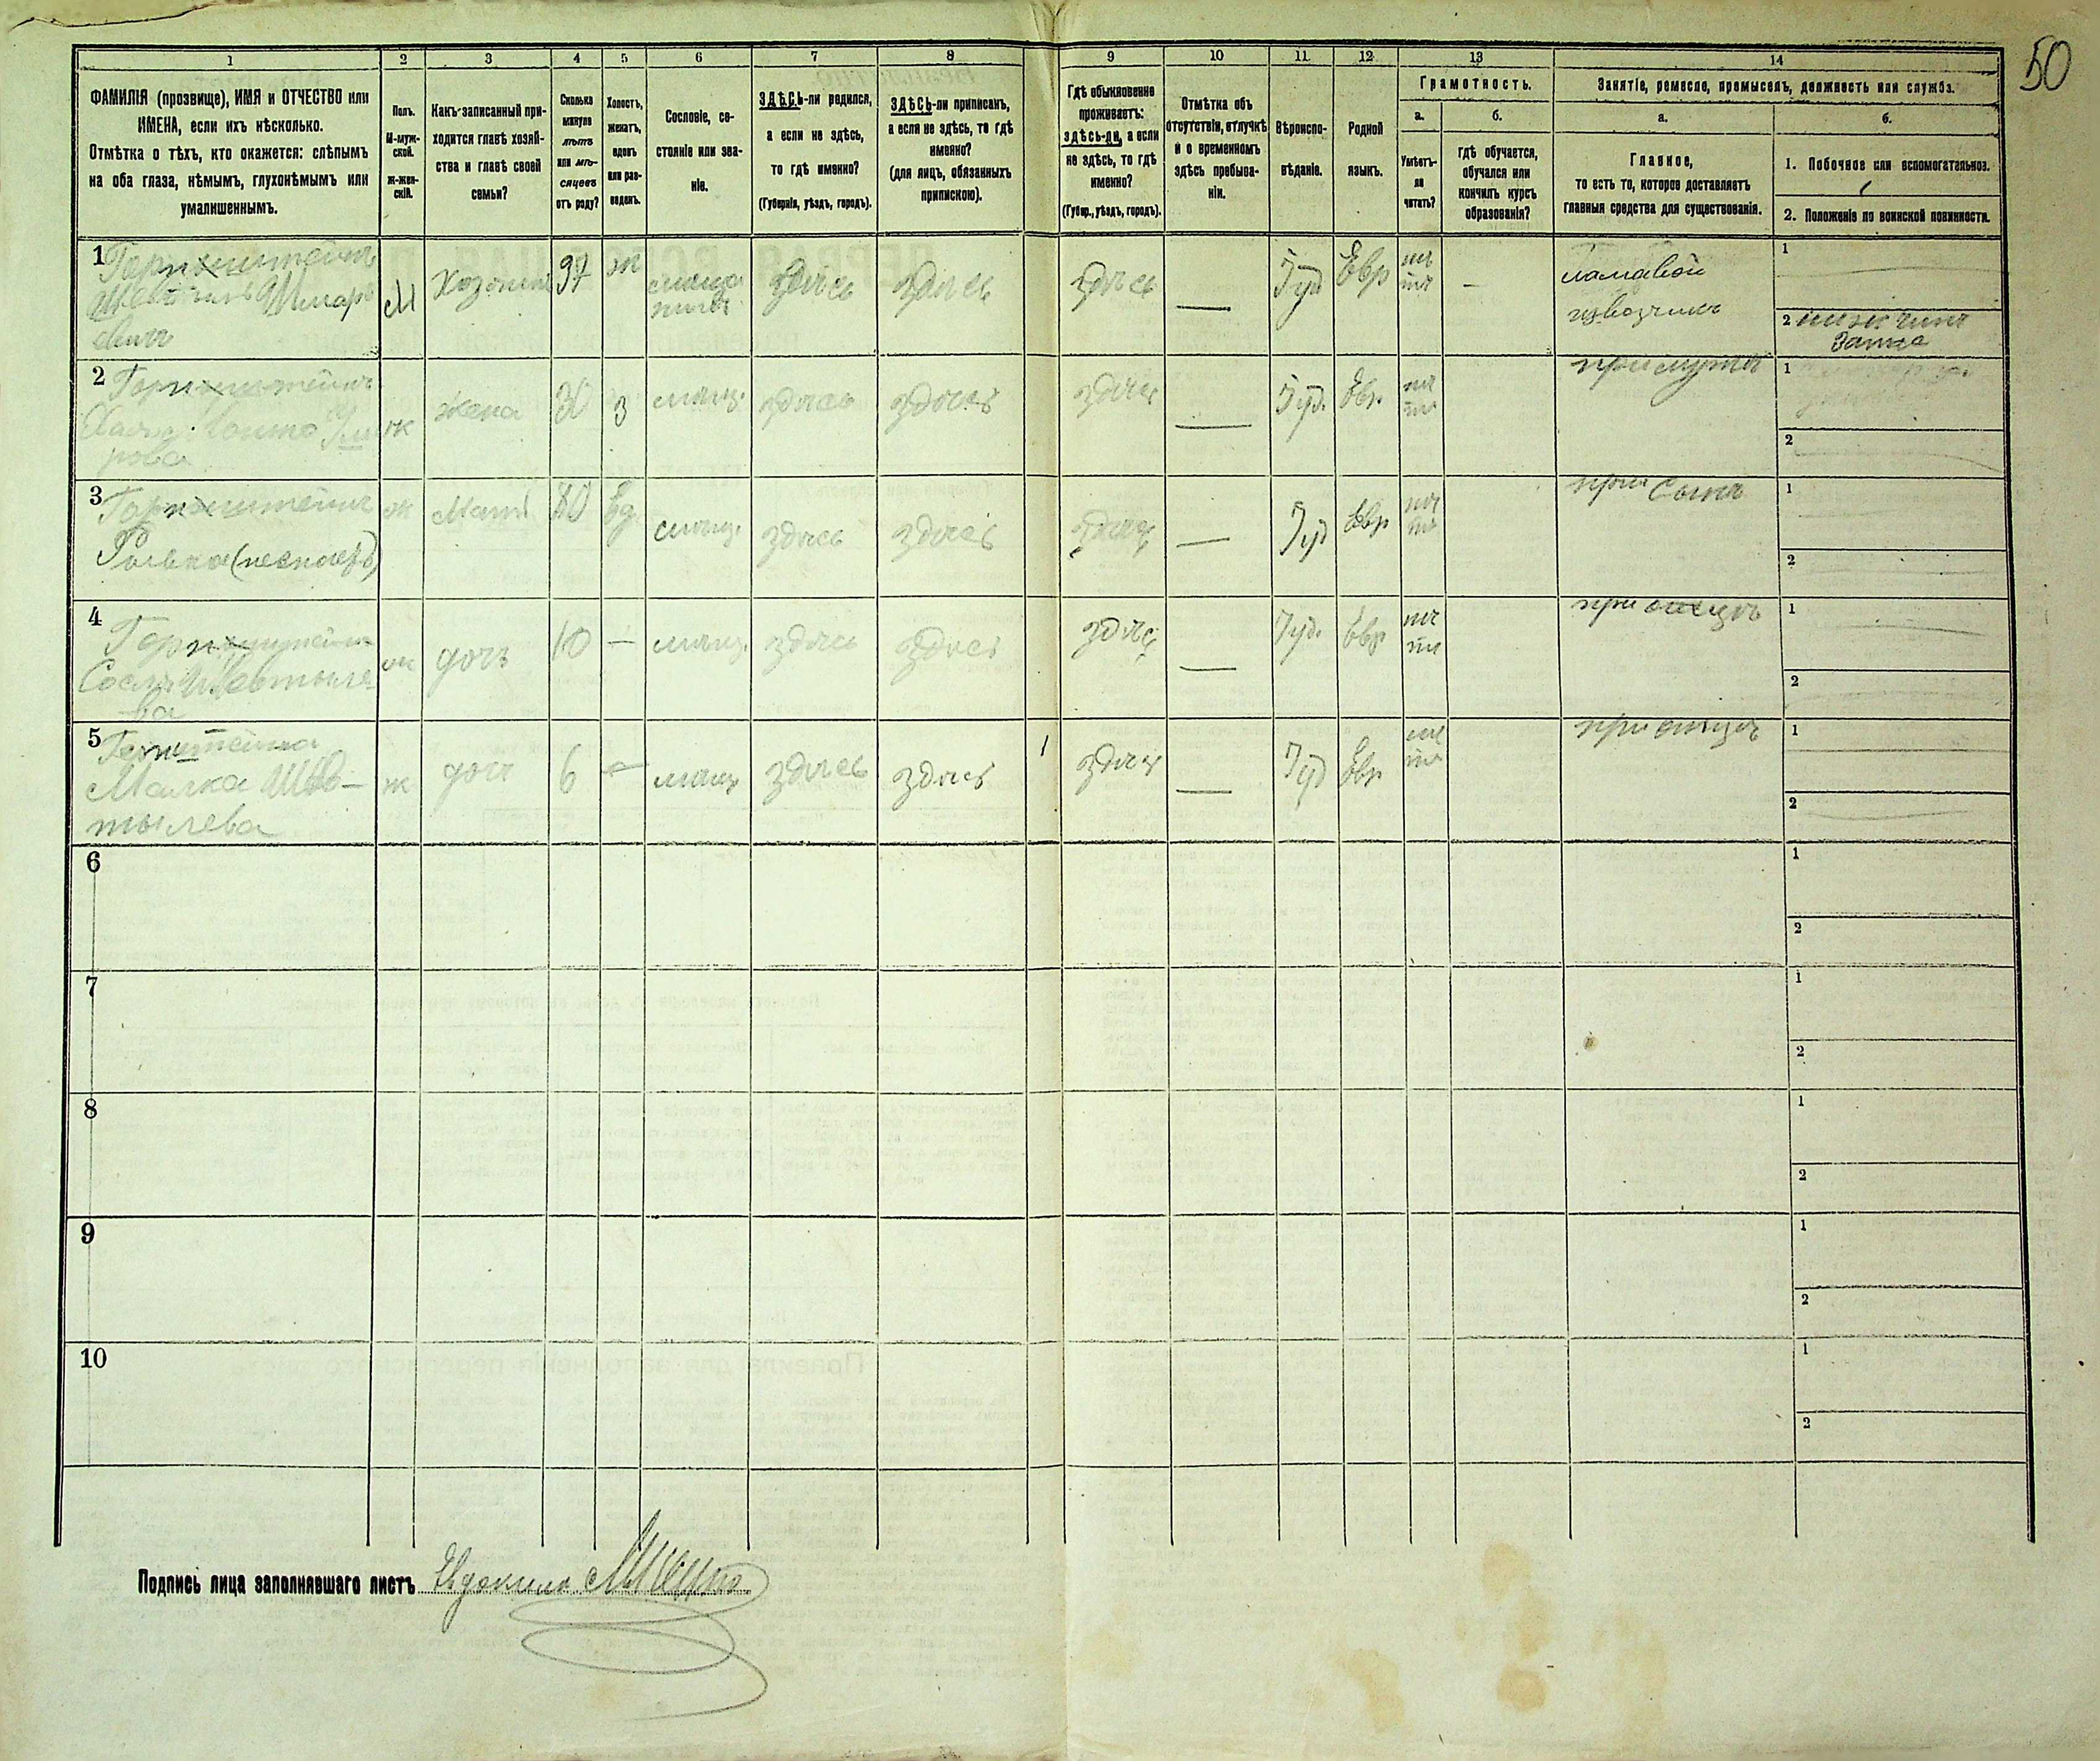 50
1 2 3 4 5 6 7 8 9 10 11 12 13 14
ФАМИЛІЯ (прозвище), ИМЯ и ОТЧЕСТВО или
ИМЕНА, если ихъ нѣсколько.
Отмѣтка о тѣхъ, кто окажется: слѣпымъ
на оба глаза, нѣмымъ, глухонѣмымъ или
умалишеннымъ.
Полъ.
М-муж-
ской.
ж-жен-
скій.
Какъ-записанный при-
ходится главѣ хозяй-
ства и главѣ своей
семьи?
Сколько
минуло
лѣтъ
или мѣ-
сяцевъ
отъ роду?
Холостъ,
женатъ,
вдовъ
или раз-
веденъ.
Сословіе, со-
стояніе или зва-
ніе.
ЗДѢСЬ-ли родился,
а если не здѣсь,
то гдѣ именно?
(Губернія, уѣздъ, городъ).
ЗДѢСЬ-ли приписанъ,
а если не здѣсь, то гдѣ
именно?
(для лицъ, обязанныхъ
припискою).
Гдѣ обыкновенно
проживаетъ:
здѣсь-ли, а если
не здѣсь, то гдѣ
именно?
(Губер., уѣздъ, городъ).
Отмѣтка объ
отсутствіи, отлучкѣ
и о временномъ
здѣсь пребыва-
ніи.
Вѣроиспо-
вѣданіе.
Родной
языкъ.
Грамотность.
а.
Умѣетъ-
ли
читать?
б.
гдѣ обучается,
обучался или
кончилъ курсъ
образованія?
Занятіе, ремесло, промыселъ, должность или служба.
а.
Главное,
то есть то, которое доставляетъ
главныя средства для существованія.
б.
1. Побочное или вспомогательное.
2. Положеніе по воинской повинности.
1
М
Хозяинъ
37
ж
мѣща
нинъ
здѣсь
здѣсь
здѣсь
Іуд
Евр
нѣ
тъ
ламавой
извозчикъ
1
2 ниж чинъ
запаса
2
ж
жена
30
з
мѣщ.
здѣсь
здѣсь
здѣсь
Іуд.
Евр.
нѣ
тъ
при мужѣ
1
2
3
ж
Мать
80
вд
мѣщ.
здѣсь
здѣсь
здѣсь
Іуд
Евр
нѣ
тъ
при сынѣ
1
2
4
ж
дочь
10
—
мѣщ.
здѣсь
здѣсь
здѣсь
Іуд.
Евр
нѣ
тъ
при отцѣ
1
2
5
Малка Шев-
тылева
ж
доч
6
мѣщ
здѣсь
здѣсь
здѣсь
Іуд
Евр
нѣ
тъ
при отцѣ
1
2
6
1
2
7
1
2
8
1
2
9
1
2
10
1
2
Подпись лица заполнявшаго листъ